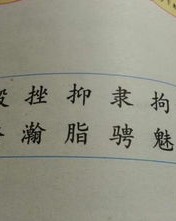 挫 抑 隶 拘
瀚 脂 骋 魅